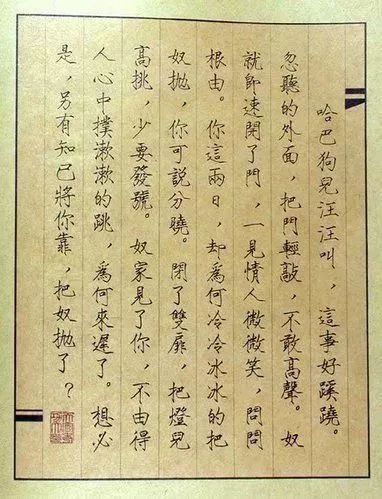 哈巴狗兒汪汪叫，這事好蹊蹺。
忽聽的外面，把門輕敲，不敢高聲。奴
就師速閉了門，一見情人微微笑，問問
根由。你這兩日，却為何冷冷冰冰的把
奴拋，你可說分曉。閉了雙扉，把燈兒
高挑，少要發號。奴家見了你，不由得
人心中撲漱漱的跳，為何來遲了。想必
是，另有知已將你靠，把奴拋了？